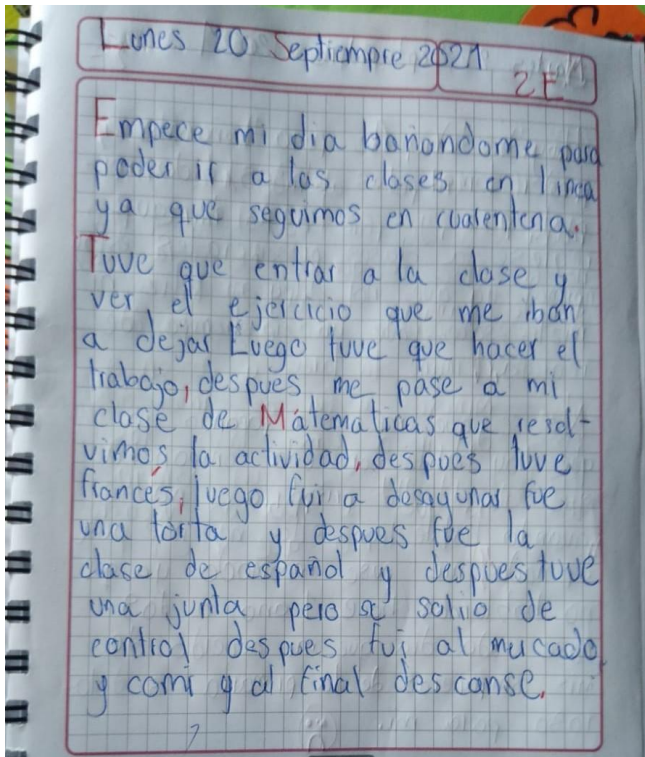 Lunes 20 Septiempre 2021
2E
Empece mi dia bañondome para
poder ir a las clases en linea
ya que seguimos en cuarentena.
Tuve que entrar a la clase y
ver el ejercicio que me iban
a dejar Luego tuve que hacer el
trabajo, despues me pase a mi
clase de Matematicas que resol-
vimos la actividad, despues tuve
francés, luego fui a desayunar fue
una torta y despues fue la
clase de español y despues tuve
una junta pero se salio de
control despues fui al mucado
y comi y al final descanse.